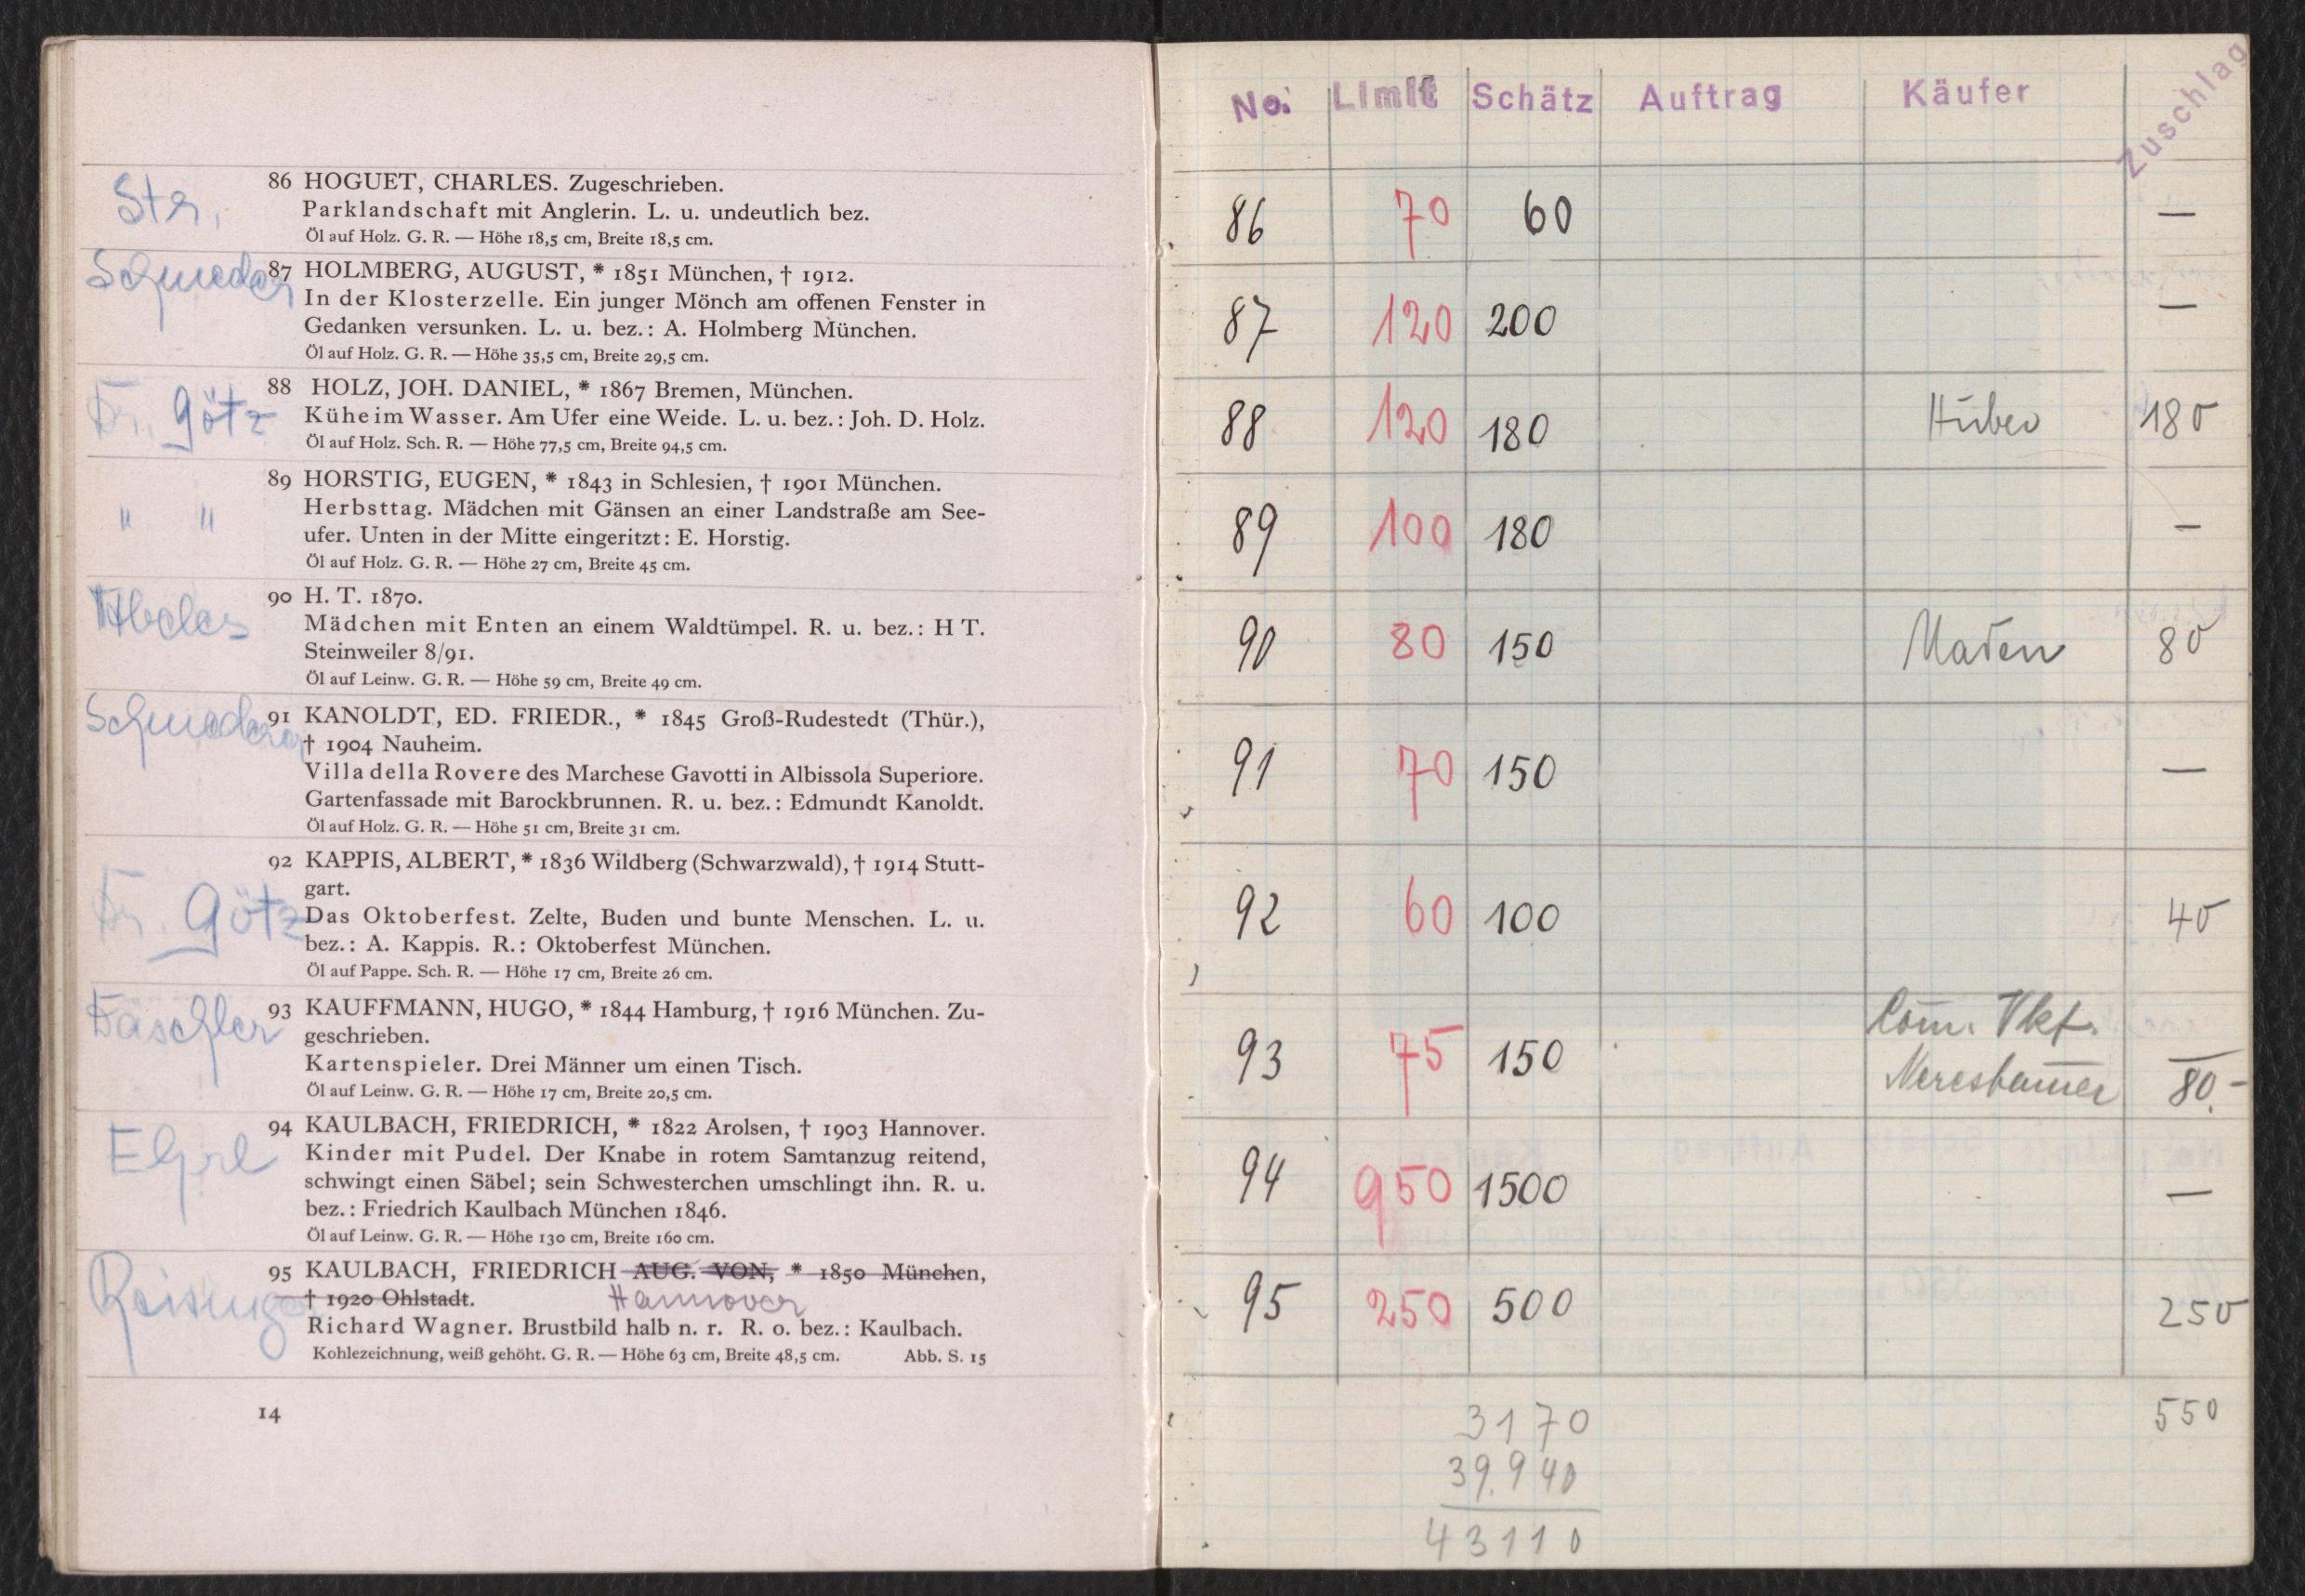 Str,
86 HOGUET, CHARLES. Zugeschrieben.
Parklandschaft mit Anglerin. L. u. undeutlich bez.
Öl auf Holz. G. R. — Höhe 18,5 cm, Breite 18,5 cm.
87 HOLMBERG, AUGUST, * 1851 München, † 1912.
In der Klosterzelle. Ein junger Mönch am offenen Fenster in
Gedanken versunken. L. u. bez.: A. Holmberg München.
Öl auf Holz. G. R. — Höhe 35,5 cm, Breite 29,5 cm.
Fr. Götz
88 HOLZ, JOH. DANIEL, * 1867 Bremen, München.
Kühe im Wasser. Am Ufer eine Weide. L. u. bez.: Joh. D. Holz.
Öl auf Holz. Sch. R. — Höhe 77,5 cm, Breite 94,5 cm.
" "
89 HORSTIG, EUGEN, * 1843 in Schlesien, † 1901 München.
Herbsttag. Mädchen mit Gänsen an einer Landstraße am See-
ufer. Unten in der Mitte eingeritzt: E. Horstig.
Öl auf Holz. G. R. — Höhe 27 cm, Breite 45 cm.
Abeles
90 H. T. 1870.
Mädchen mit Enten an einem Waldtümpel. R. u. bez.: H T.
Steinweiler 8/91.
Öl auf Leinw. G. R. — Höhe 59 cm, Breite 49 cm.
91 KANOLDT, ED. FRIEDR., * 1845 Groß-Rudestedt (Thür.),
† 1904 Nauheim.
Villa della Rovere des Marchese Gavotti in Albissola Superiore.
Gartenfassade mit Barockbrunnen. R. u. bez.: Edmundt Kanoldt.
Öl auf Holz. G. R. — Höhe 51 cm, Breite 31 cm.
Fr. Götz
92 KAPPIS, ALBERT, * 1836 Wildberg (Schwarzwald), † 1914 Stutt-
gart.
Das Oktoberfest. Zelte, Buden und bunte Menschen. L. u.
bez.: A. Kappis. R.: Oktoberfest München.
Öl auf Pappe. Sch. R. — Höhe 17 cm, Breite 26 cm.
Däschler
93 KAUFFMANN, HUGO, * 1844 Hamburg, † 1916 München. Zu-
geschrieben.
Kartenspieler. Drei Männer um einen Tisch.
Öl auf Leinw. G. R. — Höhe 17 cm, Breite 20,5 cm.
Ehrl
94 KAULBACH, FRIEDRICH, * 1822 Arolsen, † 1903 Hannover.
Kinder mit Pudel. Der Knabe in rotem Samtanzug reitend,
schwingt einen Säbel; sein Schwesterchen umschlingt ihn. R. u.
bez.: Friedrich Kaulbach München 1846.
Öl auf Leinw. G. R. — Höhe 130 cm, Breite 160 cm.
95 KAULBACH, FRIEDRICH AUG. VON, * 1850 München,
† 1920 Ohlstadt. Hannover
Richard Wagner. Brustbild halb n. r. R. o. bez.: Kaulbach.
Kohlezeichnung, weiß gehöht. G. R. — Höhe 63 cm, Breite 48,5 cm. Abb. S. 15
14
No. Limit Schätz Auftrag Käufer Zuschlag
86 70 60 —
87 120 200 —
88 120 180 Huber 180
89 100 180 —
90 80 150 80
91 70 150 —
92 60 100 40
93 75 150 Com. Vkf. —
Neresbamer 80.-
94 950 1500 —
95 250 500 250
3170 550
39.940
43110